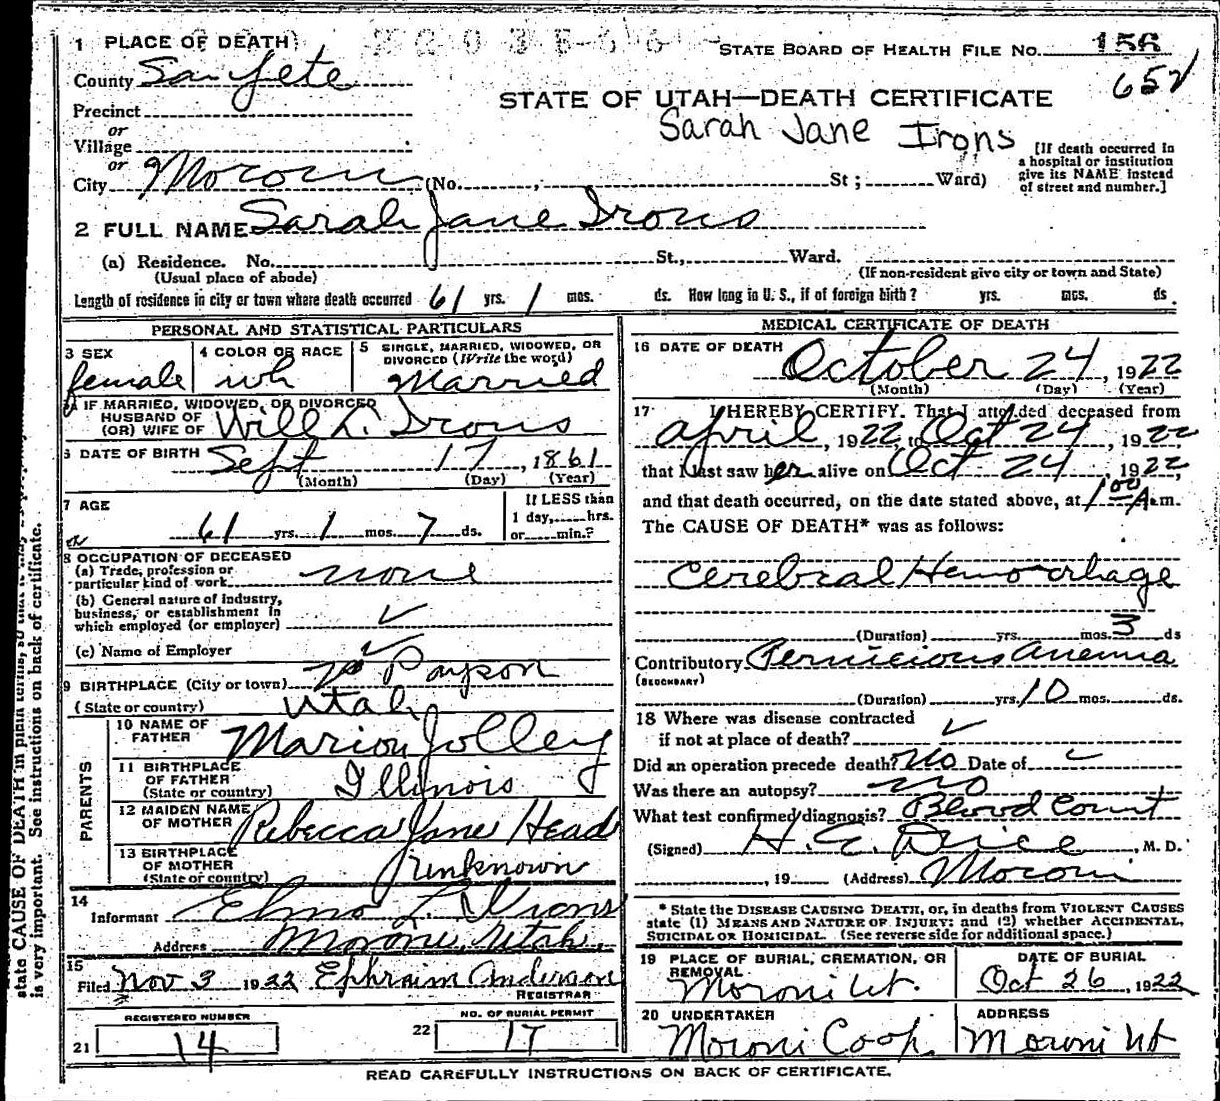 1 PLACE OF DEATH
STATE BOARD OF HEALTH FILE NO. 156
County Sanpete
652
STATE OF UTAH—DEATH CERTIFICATE
Precinct
Sarah Jane Irons
or
Village
or
City Moroni (No. , St ; Ward)
[If death occurred in
a hospital or institution
give its NAME instead
of street and number.]
2 FULL NAME Sarah Jane Irons
(a) Residence. No. St., Ward.
(Usual place of abode) (If non-resident give city or town and State)
Length of residence in city or town where death occurred 61 yrs. 1 mos. ds. How long in U. S., if of foreign birth? yrs. mos. ds.
PERSONAL AND STATISTICAL PARTICULARS
3 SEX
female
4 COLOR OR RACE
wh
5 SINGLE, MARRIED, WIDOWED, OR
DIVORCED (Write the word)
Married
IF MARRIED, WIDOWED, OR DIVORCED
HUSBAND OF
(OR) WIFE OF Will L. Irons
6 DATE OF BIRTH Sept 17, 1861
(Month) (Day) (Year)
7 AGE
61 yrs. 1 mos. 7 ds.
If LESS than
1 day, hrs.
or min.?
8 OCCUPATION OF DECEASED
(a) Trade, profession or
particular kind of work none
(b) General nature of industry,
business, or establishment in
which employed (or employer) ✓
(c) Name of Employer ✓
9 BIRTHPLACE (City or town) Payson
(State or country) Utah
PARENTS
10 NAME OF
FATHER Marion Jolley
11 BIRTHPLACE
OF FATHER
(State or country) Illinois
12 MAIDEN NAME
OF MOTHER Rebecca Jane Head
13 BIRTHPLACE
OF MOTHER
(State or country) Unknown
14
Informant Elmo L. Irons
Address Moroni Utah.
15
Filed Nov 3 1922 Ephraim Anderson
REGISTRAR
REGISTERED NUMBER
21 14
NO. OF BURIAL PERMIT
22 17
MEDICAL CERTIFICATE OF DEATH
16 DATE OF DEATH
October 24, 1922
(Month) (Day) (Year)
17 I HEREBY CERTIFY. That I attended deceased from
April, 1922, to Oct 24, 1922
that I last saw her alive on Oct 24, 1922,
and that death occurred, on the date stated above, at 1 00 A.m.
The CAUSE OF DEATH* was as follows:
Cerebral Hemorrhage
(Duration) yrs. mos. 3 ds
Contributory Pernicious Anemia
(SECONDARY)
(Duration) yrs. 10 mos. ds.
18 Where was disease contracted
if not at place of death? ✓
Did an operation precede death? No Date of ✓
Was there an autopsy? No
What test confirmed diagnosis? Blood Count
(Signed) H. E. Drice, M. D.
, 19 (Address) Moroni
* State the DISEASE CAUSING DEATH, or, in deaths from VIOLENT CAUSES
state (1) MEANS AND NATURE OF INJURY; and (2) whether ACCIDENTAL,
SUICIDAL OR HOMICIDAL. (See reverse side for additional space.)
19 PLACE OF BURIAL, CREMATION, OR
REMOVAL
Moroni Ut.
DATE OF BURIAL
Oct 26, 1922
20 UNDERTAKER
Moroni Coop.
ADDRESS
Moroni Ut
READ CAREFULLY INSTRUCTIONS ON BACK OF CERTIFICATE.
state CAUSE OF DEATH in plain terms, so that it may
is very important. See instructions on back of certificate.